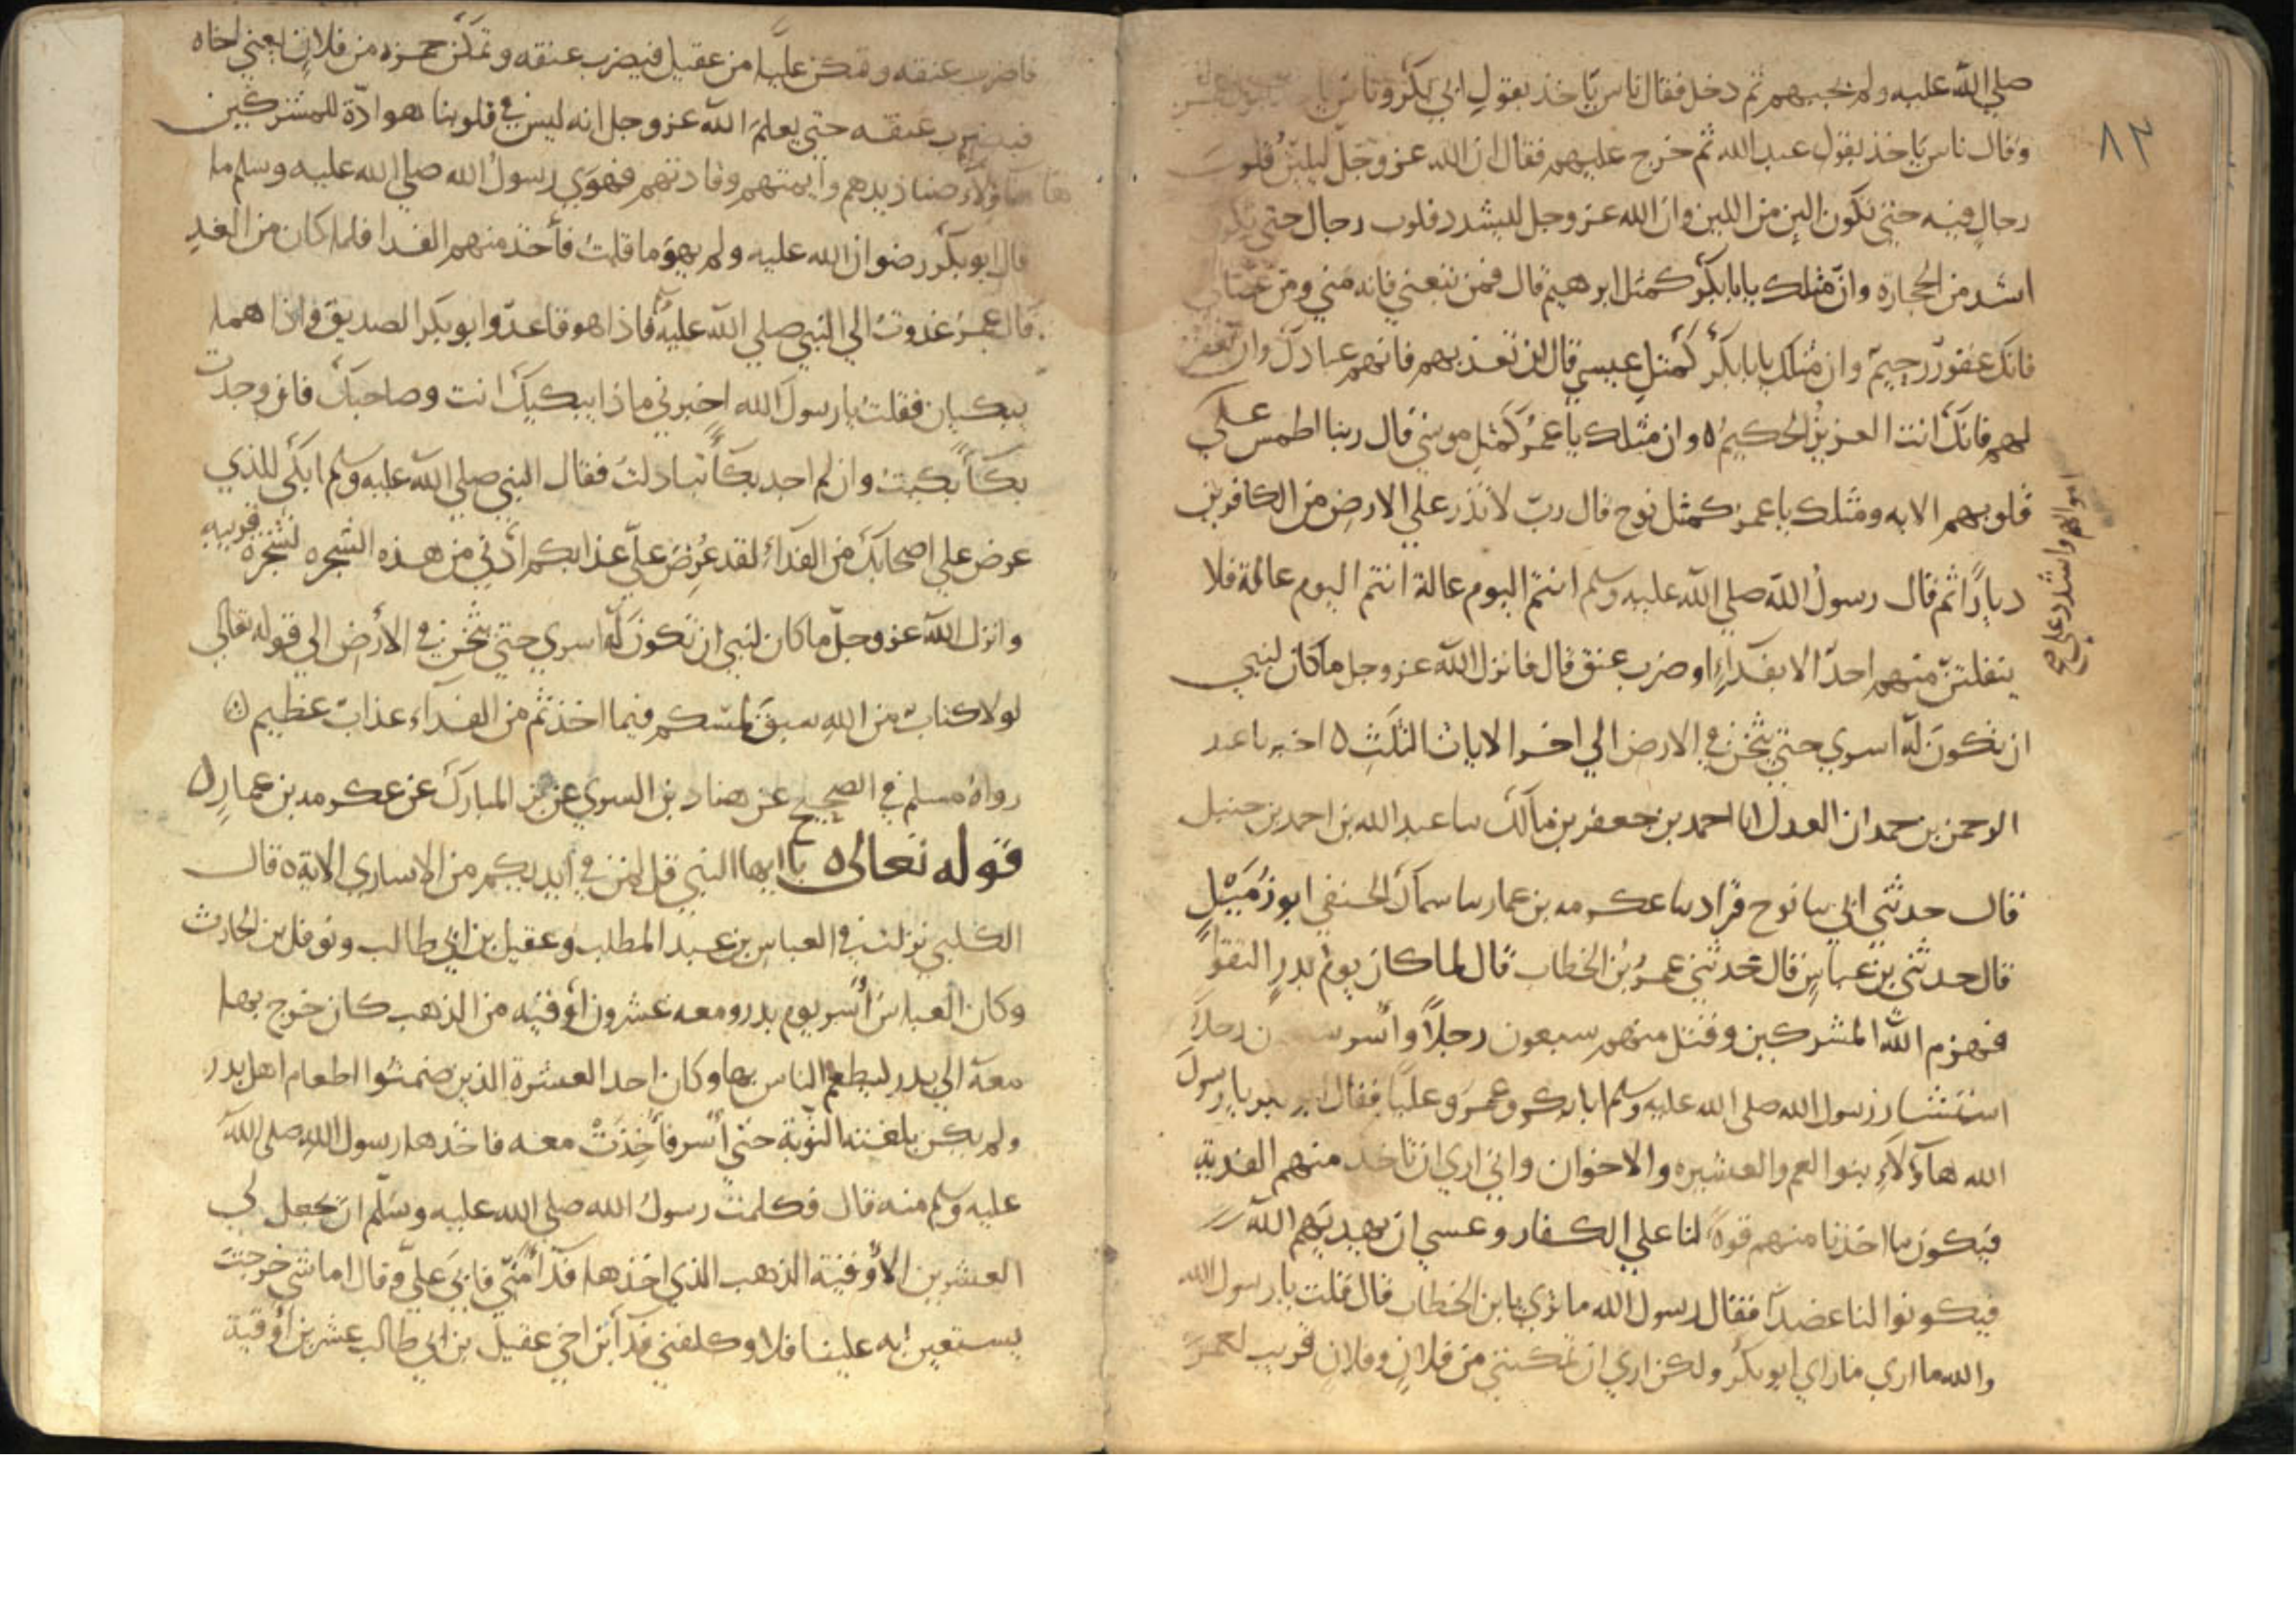 صلي الله عليه ولم يجبهم ثم دخل فقال ناس ياخذ بقول ابي بكر وناس
وقال ناس ياخذ بقول عبد الله ثم خرج عليهم فقال ان الله عز وجل ليلين قلوب
رجال فيه حتي تكون الين من اللبن وان الله عز وجل ليشدد قلوب رجال حتي تكون
اشد من الحجارة وان مثلك يابا بكر كمثل ابرهيم قال فمن تبعني فانه مني ومن عصاني
فانك غفور رحيم وان مثلك يابا بكر كمثل عيسي قال ان تعذبهم فانهم عبادك وان تغفر
لهم فانك انت العزيز الحكيم ٥ وان مثلك يا عمر كمثل موسي قال ربنا اطمس علي
اموالهم واشدد علي صح
قلوبهم الايه ومثلك يا عمر كمثل نوح قال رب لا تذر علي الارض من الكافرين
ديارا ثم قال رسول الله صلي الله عليه وسلم انتم اليوم عالة انتم اليوم عالة فلا
ينفلتن منهم احد الا بفدآء او ضرب عنق قال فانزل الله عز وجل ما كان لنبي
ان تكون له اسري حتي يثخن في الارض الي اخر الايات الثلث ٥ اخبرنا عبد
الرحمن بن حمدان العدل انا احمد بن جعفر بن مالك سا عبد الله بن احمد بن حنبل
قال حدثني ابي سا نوح قراد سا عكرمه بن عمار سا سماك الحنفي ابو زميل
قال حدثني بن عباس قال حدثني عمر بن الخطاب قال لما كان يوم بدر التقوا
فهزم الله المشركين وقتل منهم سبعون رجلا وأسر سبعون رجلا
استشار رسول الله صلي الله عليه وسلم ابا بكر وعمر وعليا فقال ابو بكر يا رسول
الله هآؤلآء بنوا العم والعشيره والاخوان واني اري ان تاخذ منهم الفدية
فيكون ما اخذنا منهم قوة لنا علي الكفار وعسي ان يهديهم الله
فيكونوا لنا عضدا فقال رسول الله ما تري يا بن الخطاب قال قلت يا رسول الله
والله ما اري ما راي ابو بكر ولكن اري ان تمكنني من فلان وفلان قريب لعمر
٨٣
فاضرب عنقه وتمكن عليا من عقيل فيضرب عنقه وتمكن حمزه من فلان يعني اخاه
فيضرب عنقه حتي يعلم الله عز وجل انه ليس في قلوبنا هوادة للمشركين
هآؤلآء صناديدهم وأيمتهم وقادتهم فهوي رسول الله صلي الله عليه وسلم ما
قال ابو بكر رضوان الله عليه ولم يهو ما قلت فأخذ منهم الفدا فلما كان من الغد
قال عمر غدوت الي النبي صلي الله عليه فاذا هو قاعد وابو بكر الصديق واذا هما
يبكيان فقلت يا رسول الله اخبرني ماذا يبكيك انت وصاحبك فان وجدت
بكآ بكيت وان لم اجد بكآ تباكيت فقال النبي صلي الله عليه وسلم ابكي للذي
عرض علي اصحابك من الفدآء لقد عرض علي عذابكم أدني من هذه الشجره لشجرة قريبه
وانزل الله عز وجل ما كان لنبي ان تكون له اسري حتي يثخن في الأرض الي قوله تعالي
لولا كتاب من الله سبق لمسكم فيما اخذتم من الفدآء عذاب عظيم
رواه مسلم في الصحيح عن هناد بن السري عن بن المبارك عن عكرمه بن عمار ٥
قوله تعالى ٥ يا ايها النبي قل لمن في أيديكم من الاساري الاية ٥ قال
الكلبي نزلت في العباس بن عبد المطلب وعقيل بن ابي طالب ونوفل بن الحارث
وكان العباس أسر يوم بدر ومعه عشرون أوقيه من الذهب كان خرج بها
معه الي بدر ليطعم الناس بها وكان احد العشرة الذين ضمنوا اطعام اهل بدر
ولم يكن بلغته النوبة حتي أسر فأخذت معه فاخذها رسول الله صلي الله
عليه وسلم منه قال فكلمت رسول الله صلي الله عليه وسلم ان يجعل لي
العشرين الأوقية الذهب الذي اخذها فدآ مني فابي علي وقال اما شي خرجت
يستعين به علينا فلا وكلفني فدآ بن اخي عقيل بن ابي طالب عشرين أوقية